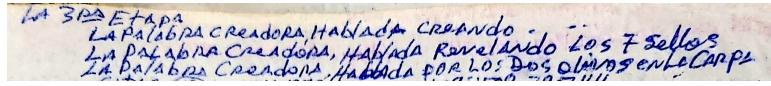 LA 3RA ETAPA
LA PALABRA CREADORA, HABLADA CREANDO...
LA PALABRA CREADORA, HABLADA REVELANDO LOS 7 SELLOS
LA PALABRA CREADORA, HABLADA POR LOS DOS OLIVOS EN LA CARPA